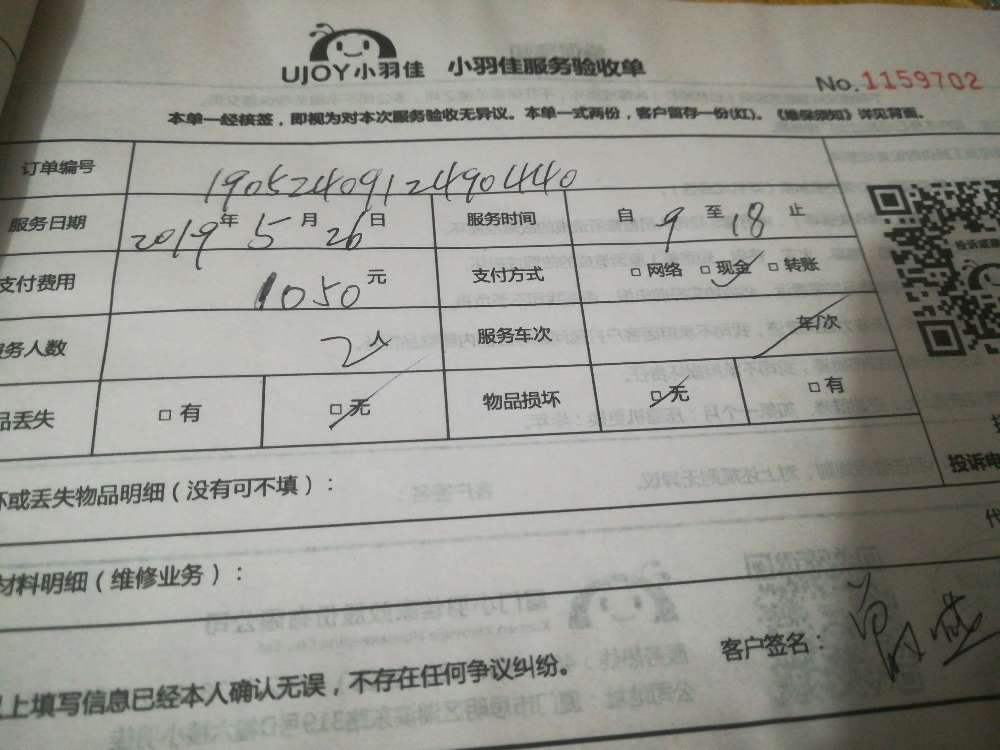 UJOY小羽佳 小羽佳服务验收单
No.1159702
本单一经核签，即视为对本次服务验收无异议。本单一式两份，客户留存一份(红)。《维保须知》详见背面。
订单编号 190524091249044​0
服务日期 2019年5月26日 服务时间 自9至18止
支付费用 1050元 支付方式 □网络 □现金 □转账
务人数 2人 服务车次 车/次
品丢失 □有 □无 物品损坏 □无 □有
坏或丢失物品明细（没有可不填）：
投诉电
材料明细（维修业务）：
代
客户签名：
上填写信息已经本人确认无误，不存在任何争议纠纷。